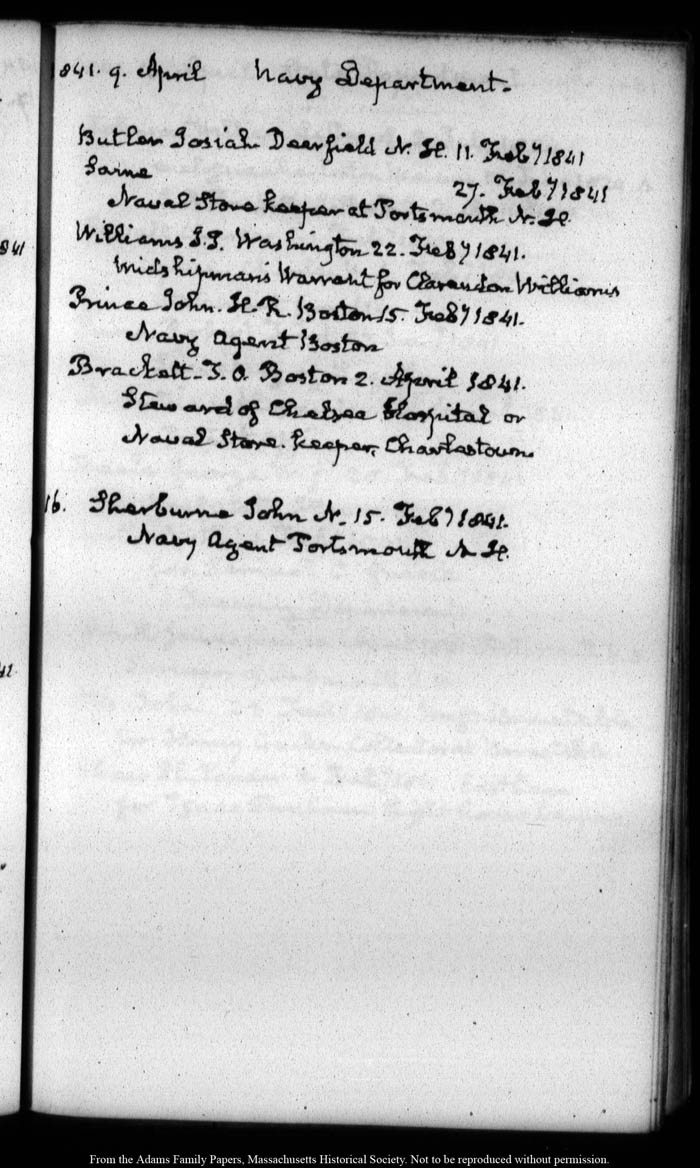 1841. 9. April Navy Department.
Butler Josiah Deerfield N. H. 11. Feby 1841
Same 27. Feby 1841
Naval Store keeper at Portsmouth N. H.
Williams Washington 22. Feby 1841.
Midshipman's Warrant for Clarendon Williams
Prince John. H. R. Boston 15. Feby 1841.
Navy Agent Boston
Brackett. J. O. Boston 2. April 1841.
Steward of Chelsea Hospital or
Naval Store. keeper, Charlestown
16. Sherburne John N. 15. Feby 1841.
Navy Agent Portsmouth N H.
841
41
From the Adams Family Papers, Massachusetts Historical Society. Not to be reproduced without permission.